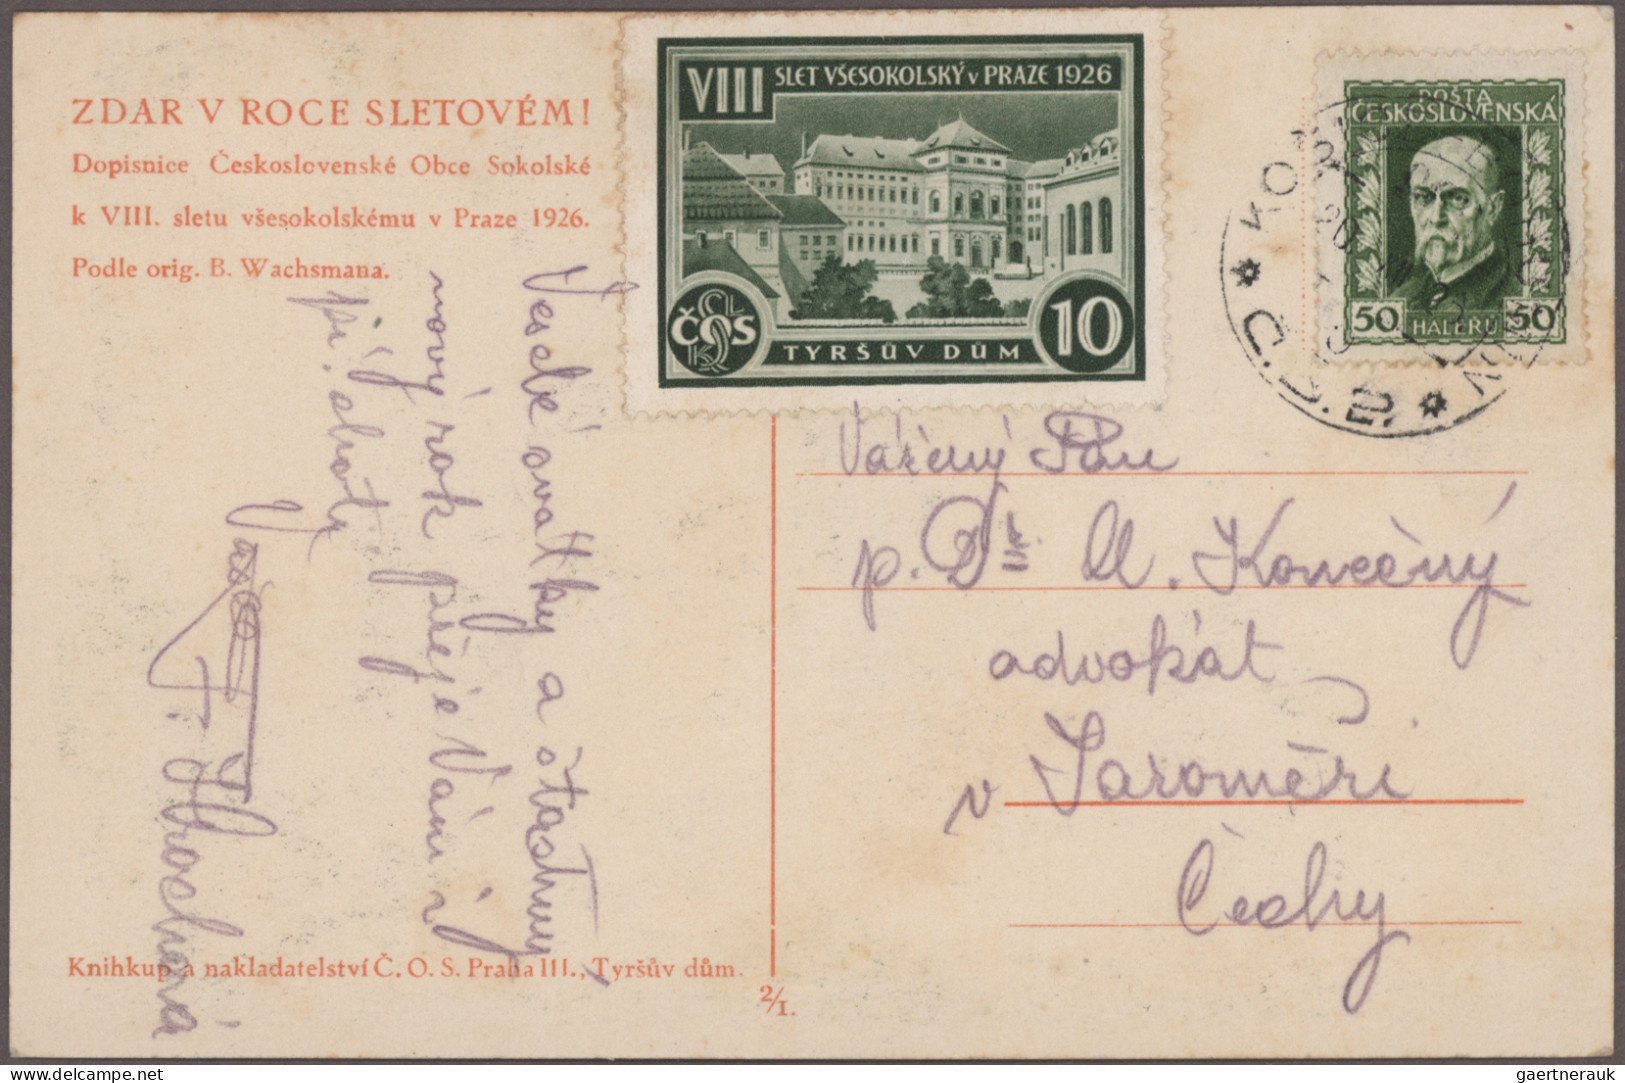 ZDAR V ROCE SLETOVÉM!
Dopisnice Československé Obce Sokolské
k VIII. sletu všesokolskému v Praze 1926.
Podle orig. B. Wachsmana.
VIII SLET VŠESOKOLSKÝ v PRAZE 1926
ČOS
TYRŠŮV DŮM 10
POŠTA
ČESKOSLOVENSKÁ
50 HALÉŘŮ 50
Veselé svátky a šťastný
nový rok přeje Vám i
Hrochová
Vážený Pán
p. Dr. Konečný
advokát
v Jaroměři
Čechy
Knihkup. a nakladatelství Č. O. S. Praha III., Tyršův dům.
2/1.
www.delcampe.net
gaertnerauk